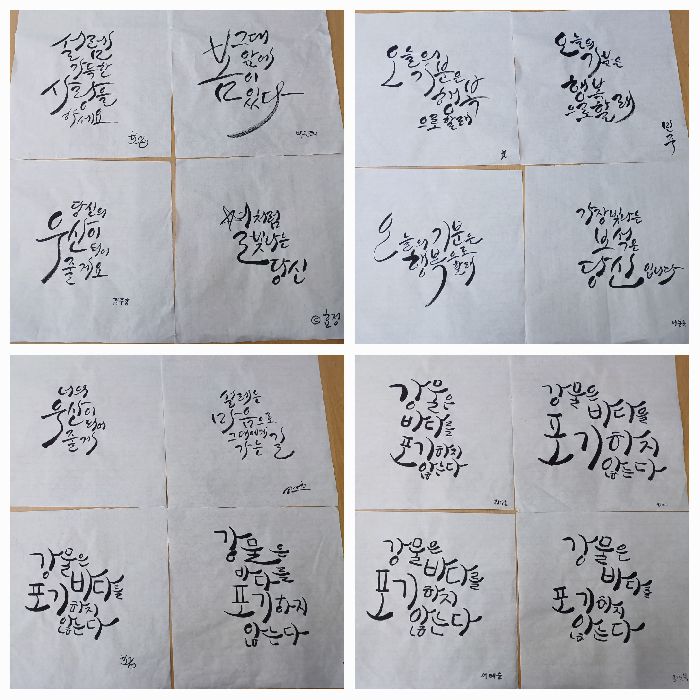 설렘이
가득한
사랑을
하세요
그대
앞에
봄이
있다
당신의
우산이
되어
줄게요
별처럼
빛나는
당신
© 효정
오늘의
기분은
행복
으로할래
오늘의
기분은
행복
으로할래
민주
오늘의 기분은
행복으로
할래
가장빛나는
보석은
당신입니다
너의
우산이
되어
줄게
설레는
마음으로
그대에게
가는 길
강물은
바다를
포기하지
않는다
강물은
바다를
포기하지
않는다
강물은
바다를
포기하지
않는다
강물은
바다를
포기하지
않는다
강물은
바다를
포기하지
않는다
강물은
바다를
포기하지
않는다